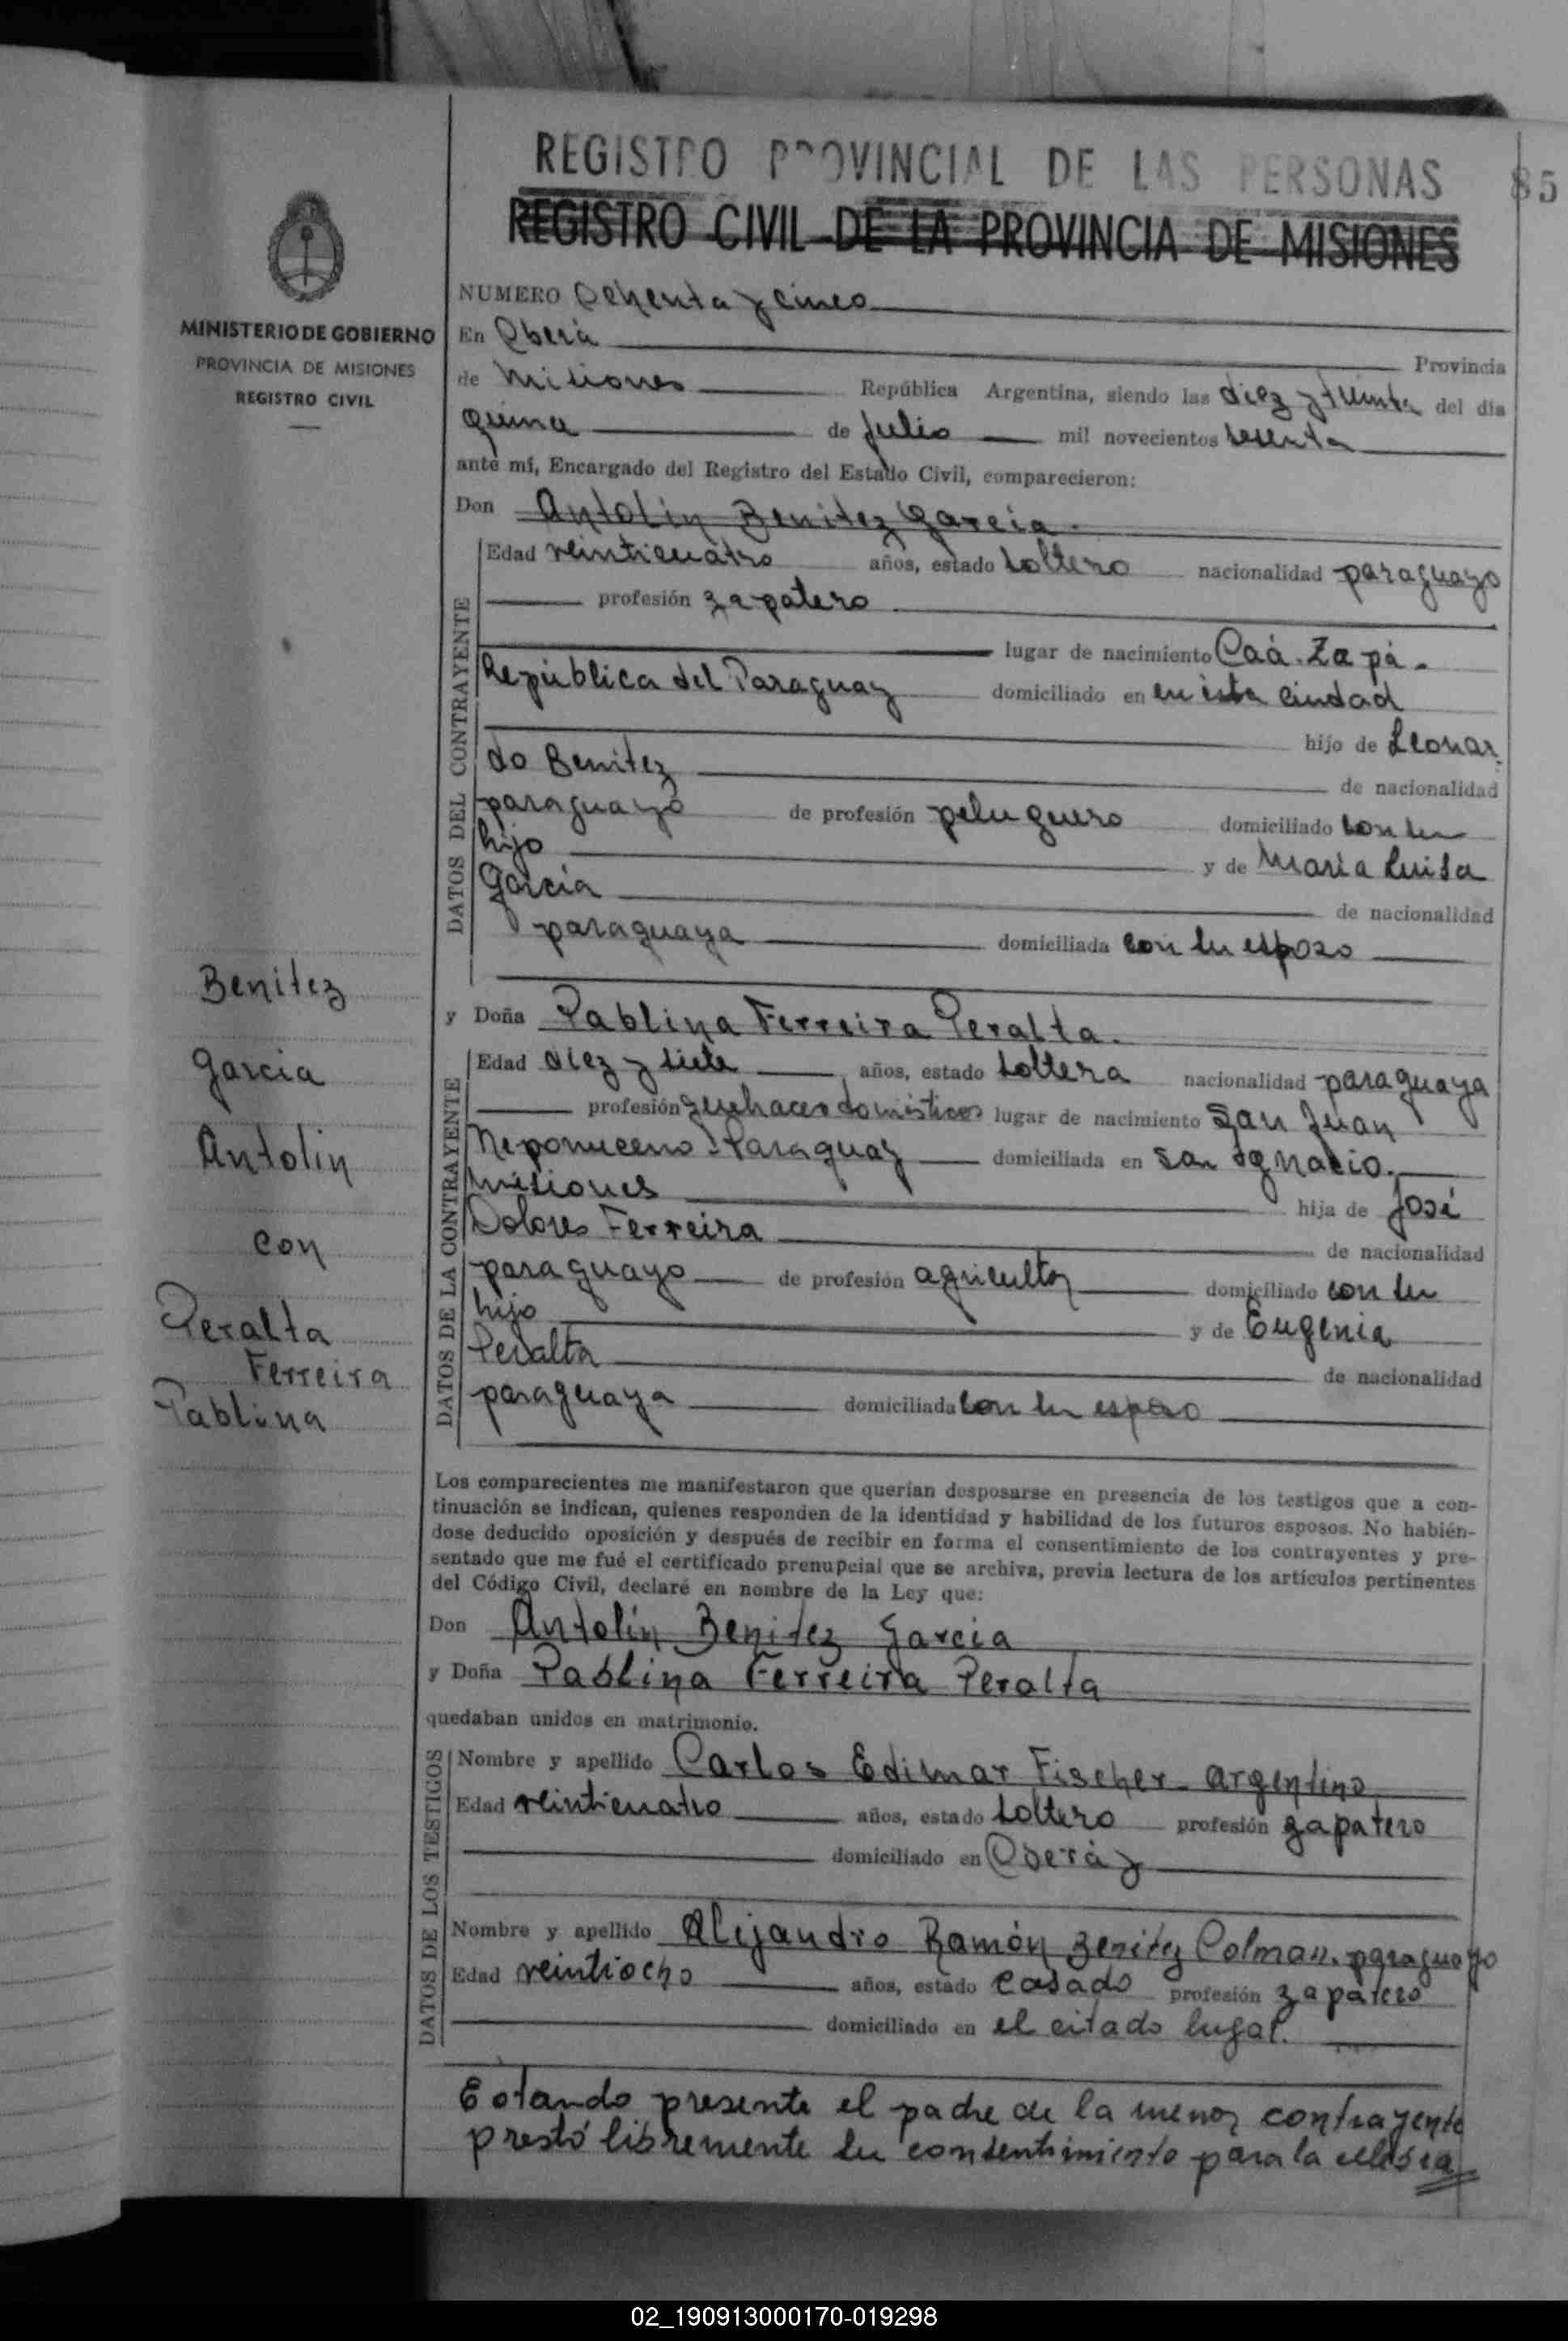 REGISTRO PROVINCIAL DE LAS PERSONAS
85
REGISTRO CIVIL DE LA PROVINCIA DE MISIONES
MINISTERIO DE GOBIERNO
PROVINCIA DE MISIONES
REGISTRO CIVIL
NUMERO Ochenta y cinco
En Oberá Provincia
de Misiones República Argentina, siendo las diez y treinta del día
quince de Julio mil novecientos sesenta
ante mí, Encargado del Registro del Estado Civil, comparecieron:
Don Antolín Benitez Garcia.
DATOS DEL CONTRAYENTE
Edad veinticuatro años, estado soltero nacionalidad paraguayo
profesión zapatero
lugar de nacimiento Caá-Zapá.
República del Paraguay domiciliado en en ésta ciudad
hijo de Leonar
do Benitez de nacionalidad
paraguayo de profesión peluquero domiciliado con su
hijo y de María Luisa
García de nacionalidad
paraguaya domiciliada con su esposo
y Doña Pablina Ferreira Peralta.
DATOS DE LA CONTRAYENTE
Edad diez y siete años, estado soltera nacionalidad paraguaya
profesión quehaceres domésticos lugar de nacimiento San Juan
Nepomuceno-Paraguay domiciliada en San Ignacio.
Misiones hija de José
Dolores Ferreira de nacionalidad
paraguayo de profesión agricultor domiciliado con su
hijo y de Eugenia
Peralta de nacionalidad
paraguaya domiciliada con su esposo
Benitez
Garcia
Antolín
con
Peralta
Ferreira
Pablina
Los comparecientes me manifestaron que querían desposarse en presencia de los testigos que a con-
tinuación se indican, quienes responden de la identidad y habilidad de los futuros esposos. No habién-
dose deducido oposición y después de recibir en forma el consentimiento de los contrayentes y pre-
sentado que me fué el certificado prenupcial que se archiva, previa lectura de los artículos pertinentes
del Código Civil, declaré en nombre de la Ley que:
Don Antolín Benitez Garcia
y Doña Pablina Ferreira Peralta
quedaban unidos en matrimonio.
DATOS DE LOS TESTIGOS
Nombre y apellido Carlos Edimar Fischer-argentino
Edad veinticuatro años, estado soltero profesión zapatero
domiciliado en Oberá y
Nombre y apellido Alejandro Ramón Benitez Colman. paraguayo
Edad veintiocho años, estado casado profesión zapatero
domiciliado en el citado lugar.
Estando presente el padre de la menor contrayente
prestó libremente su consentimiento para la
02_190913000170-019298